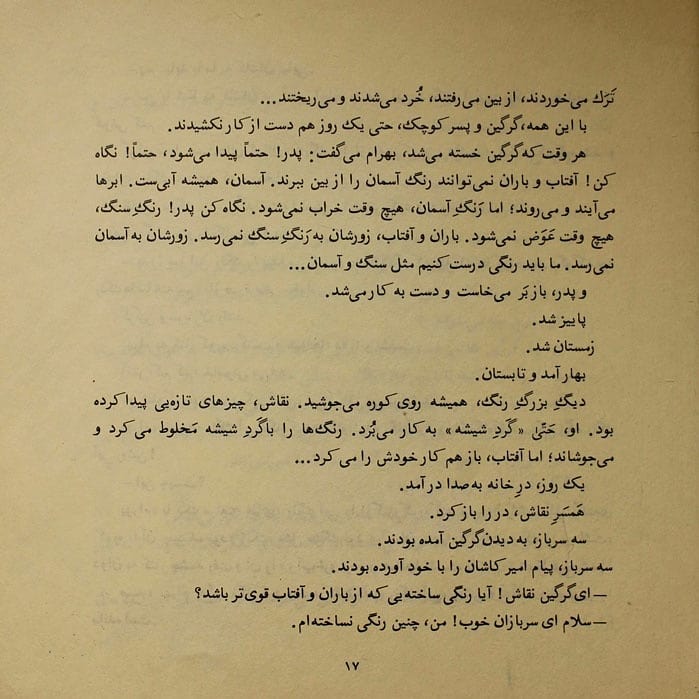 تَرَك می‌خوردند، از بین می‌رفتند، خُرد می‌شدند و می‌ریختند...
با این همه، گرگین و پسر کوچک، حتی یک روز هم دست از کار نکشیدند.
هر وقت که گرگین خسته می‌شد، بهرام می‌گفت: پدر! حتماً پیدا می‌شود، حتماً! نگاه
کن! آفتاب و باران نمی‌توانند رنگ آسمان را از بین ببرند. آسمان، همیشه آبی‌ست. ابرها
می‌آیند و می‌روند؛ اما رَنگِ آسمان، هیچ وقت خراب نمی‌شود. نگاه کن پدر! رنگِ سنگ،
هیچ وقت عَوَض نمی‌شود. باران و آفتاب، زورشان به رَنگِ سنگ نمی‌رسد. زورشان به آسمان
نمی‌رسد. ما باید رنگی درست کنیم مثل سنگ و آسمان...
و پدر، باز بَر می‌خاست و دست به کار می‌شد.
پاییز شد.
زمستان شد.
بهار آمد و تابستان.
دیگِ بزرگِ رنگ، همیشه رویِ کوره می‌جوشید. نقاش، چیزهای تازه‌یی پیدا کرده
بود. او، حَتّیٰ «گَردِ شیشه» به کار می‌بُرد. رنگ‌ها را با گَردِ شیشه مَخلوط می‌کرد و
می‌جوشاند؛ اما آفتاب، باز هم کار خودش را می‌کرد...
یک روز، درِ خانه به صدا درآمد.
هَمسَرِ نقاش، در را باز کرد.
سه سرباز، به دیدن گرگین آمده بودند.
سه سرباز، پیام امیر کاشان را با خود آورده بودند.
— ای گرگین نقاش! آیا رنگی ساخته‌یی که از باران و آفتاب قوی‌تر باشد؟
— سلام ای سربازان خوب! من، چنین رنگی نساخته‌ام.
۱۷